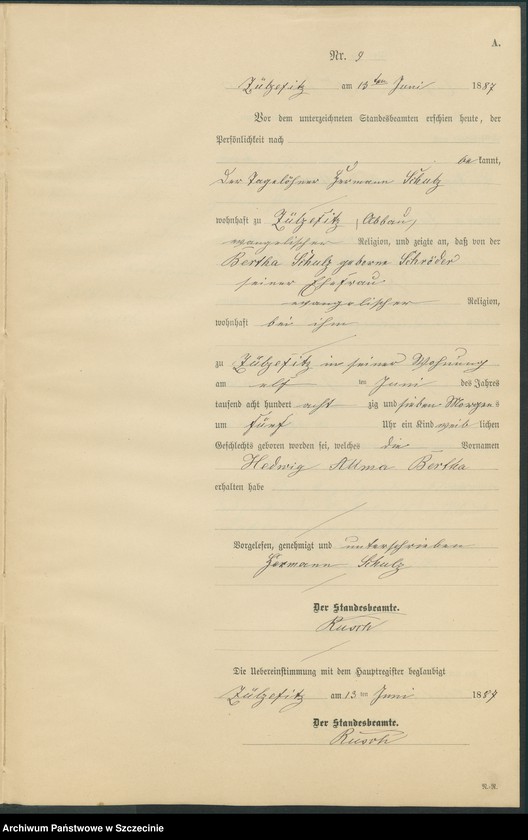 A.
Nr. 9
Zülzefitz am 13ten Juni 1887
Vor dem unterzeichneten Standesbeamten erschien heute, der
Persönlichkeit nach
bekannt,
Der Tagelöhner Hermann Schulz
wohnhaft zu Zülzefitz (Abbau)
evangelischer Religion, und zeigte an, daß von der
Bertha Schulz geborne Schröder
seiner Ehefrau
evangelischer Religion,
wohnhaft bei ihm
zu Zülzefitz in seiner Wohnung
am elf ten Juni des Jahres
tausend acht hundert acht zig und sieben Morgens
um fünf Uhr ein Kind weiblichen
Geschlechts geboren worden sei, welches die Vornamen
Hedwig Bertha
erhalten habe
Vorgelesen, genehmigt und unterschrieben
Hermann Schulz
Der Standesbeamte.
Rusch
Die Uebereinstimmung mit dem Hauptregister beglaubigt
Zülzefitz am 13 ten Juni 1887
Der Standesbeamte.
Rusch
N.-R.
Archiwum Państwowe w Szczecinie